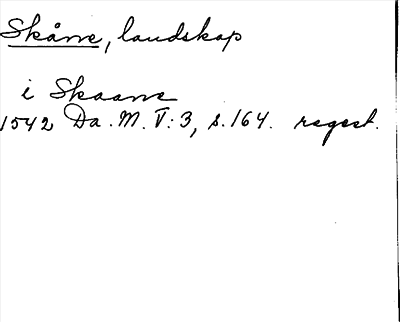 Skåne, landskap
i Skaane
1542 Da. M. V: 3, s. 164. regest.